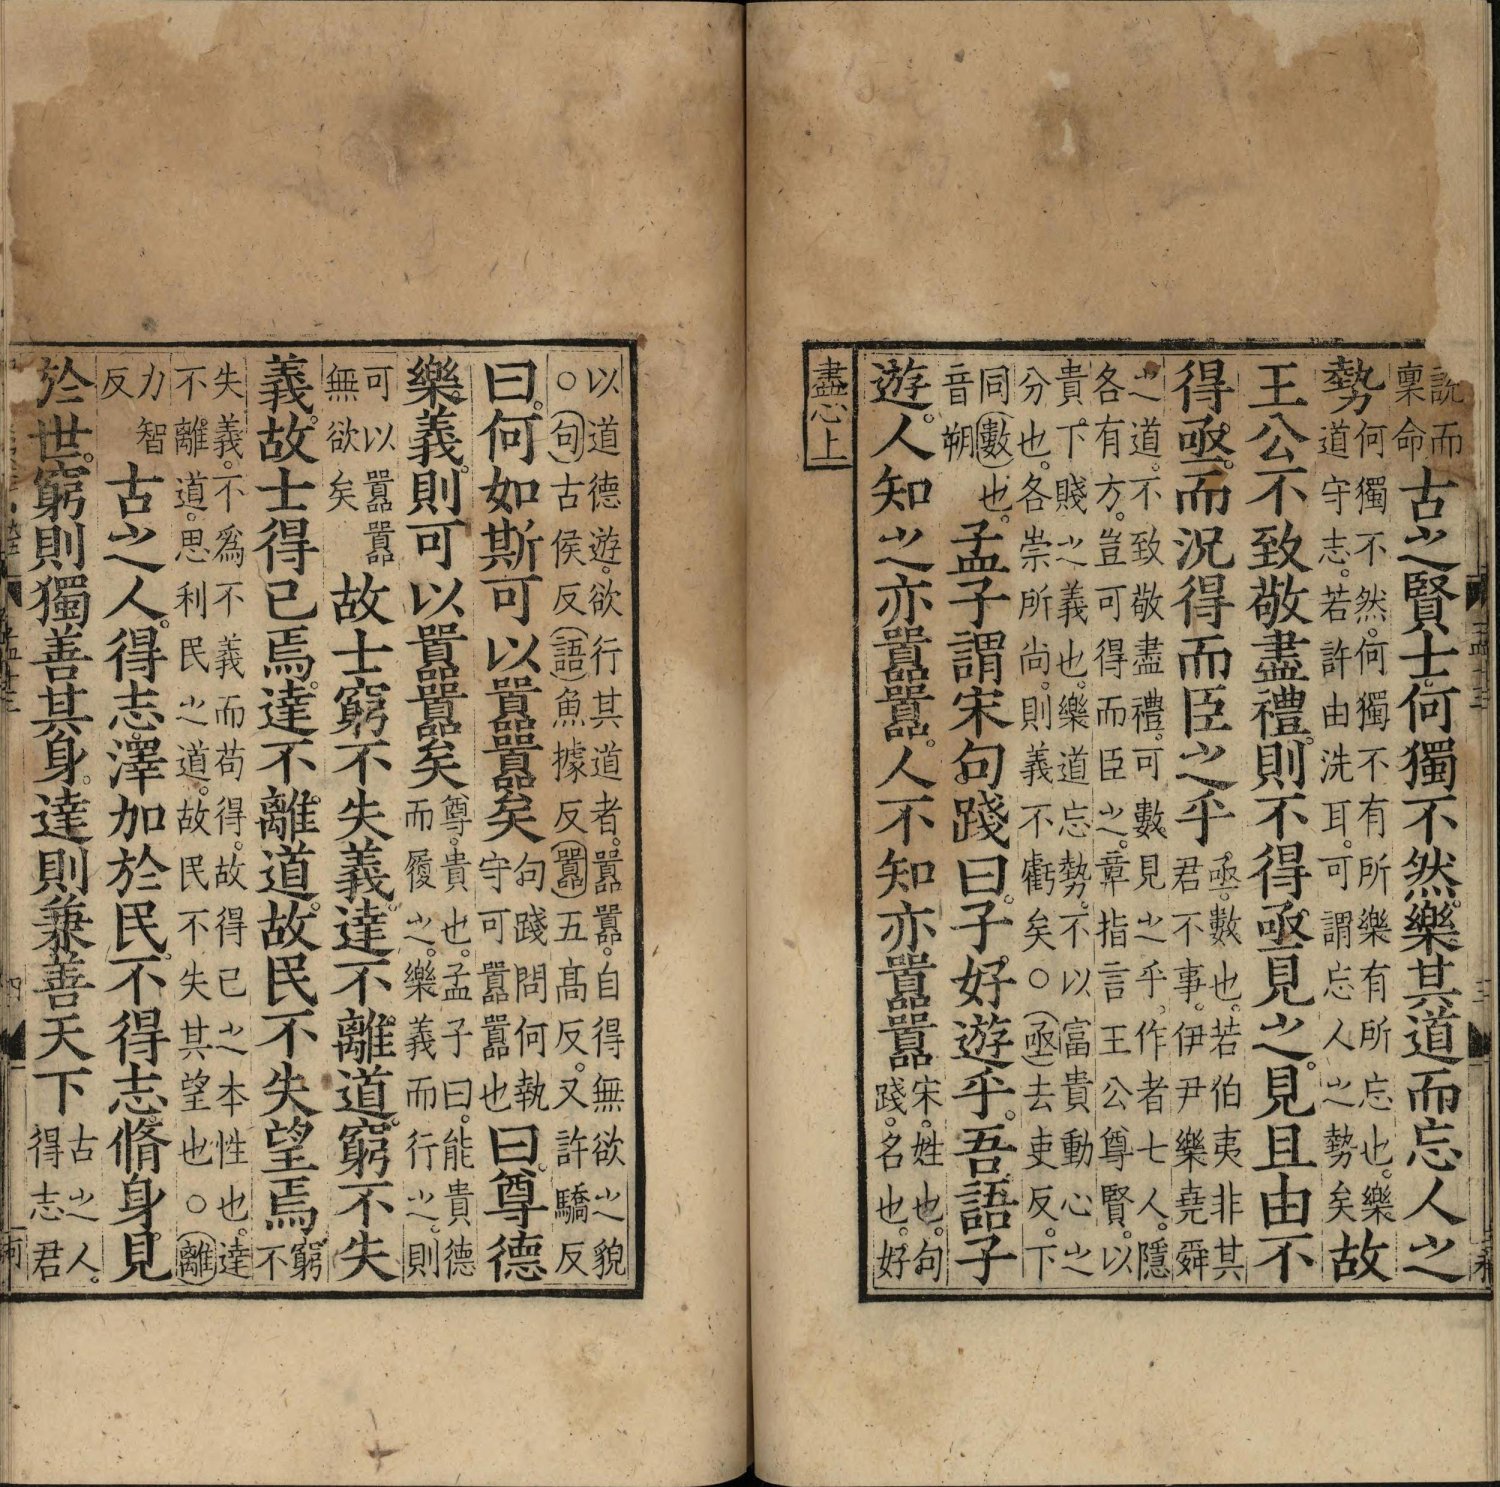 說而稟命古之賢士。何獨不然。樂其道而忘人之
勢何獨不然。何獨不有所樂有所忘也。樂道守志。若許由洗耳。可謂忘人之勢矣故
王公不致敬盡禮。則不得亟見之。見且由不
得亟。而況得而臣之乎。亟。數也。若伯夷非其君不事。伊尹樂堯舜
之道。不致敬盡禮。可數見之乎。作者七人。隱各有方。豈可得而臣之。章指言王公尊賢。以
貴。下賤之義也。樂道忘勢。不以富貴動心之分也。各崇所尚。則義不虧矣○(亟)去吏反。下
同(數)也。音朔孟子謂宋句踐曰。子好遊乎。吾語子
遊。人知之亦囂囂。人不知亦囂囂宋。姓也。句踐。名也。好
盡心上
以道德遊。欲行其道者。囂囂。自得無欲之貌○(句)古侯反(語)魚據反(囂)五高反。又許驕反
曰。何如斯可以囂囂矣句踐問何執守可囂囂也曰。尊德
樂義。則可以囂囂矣尊。貴也。孟子曰。能貴德而履之。樂義而行之。則
可以囂囂無欲矣故士窮不失義。達不離道。窮不失
義。故士得己焉。達不離道。故民不失望焉窮。不
失義。不為不義而苟得。故得己之本性也。達不離道。思利民之道。故民不失其望也。○(離)
力智反古之人。得志。澤加於民。不得志。脩身。見
於世。窮則獨善其身。達則兼善天下古之人。得志君